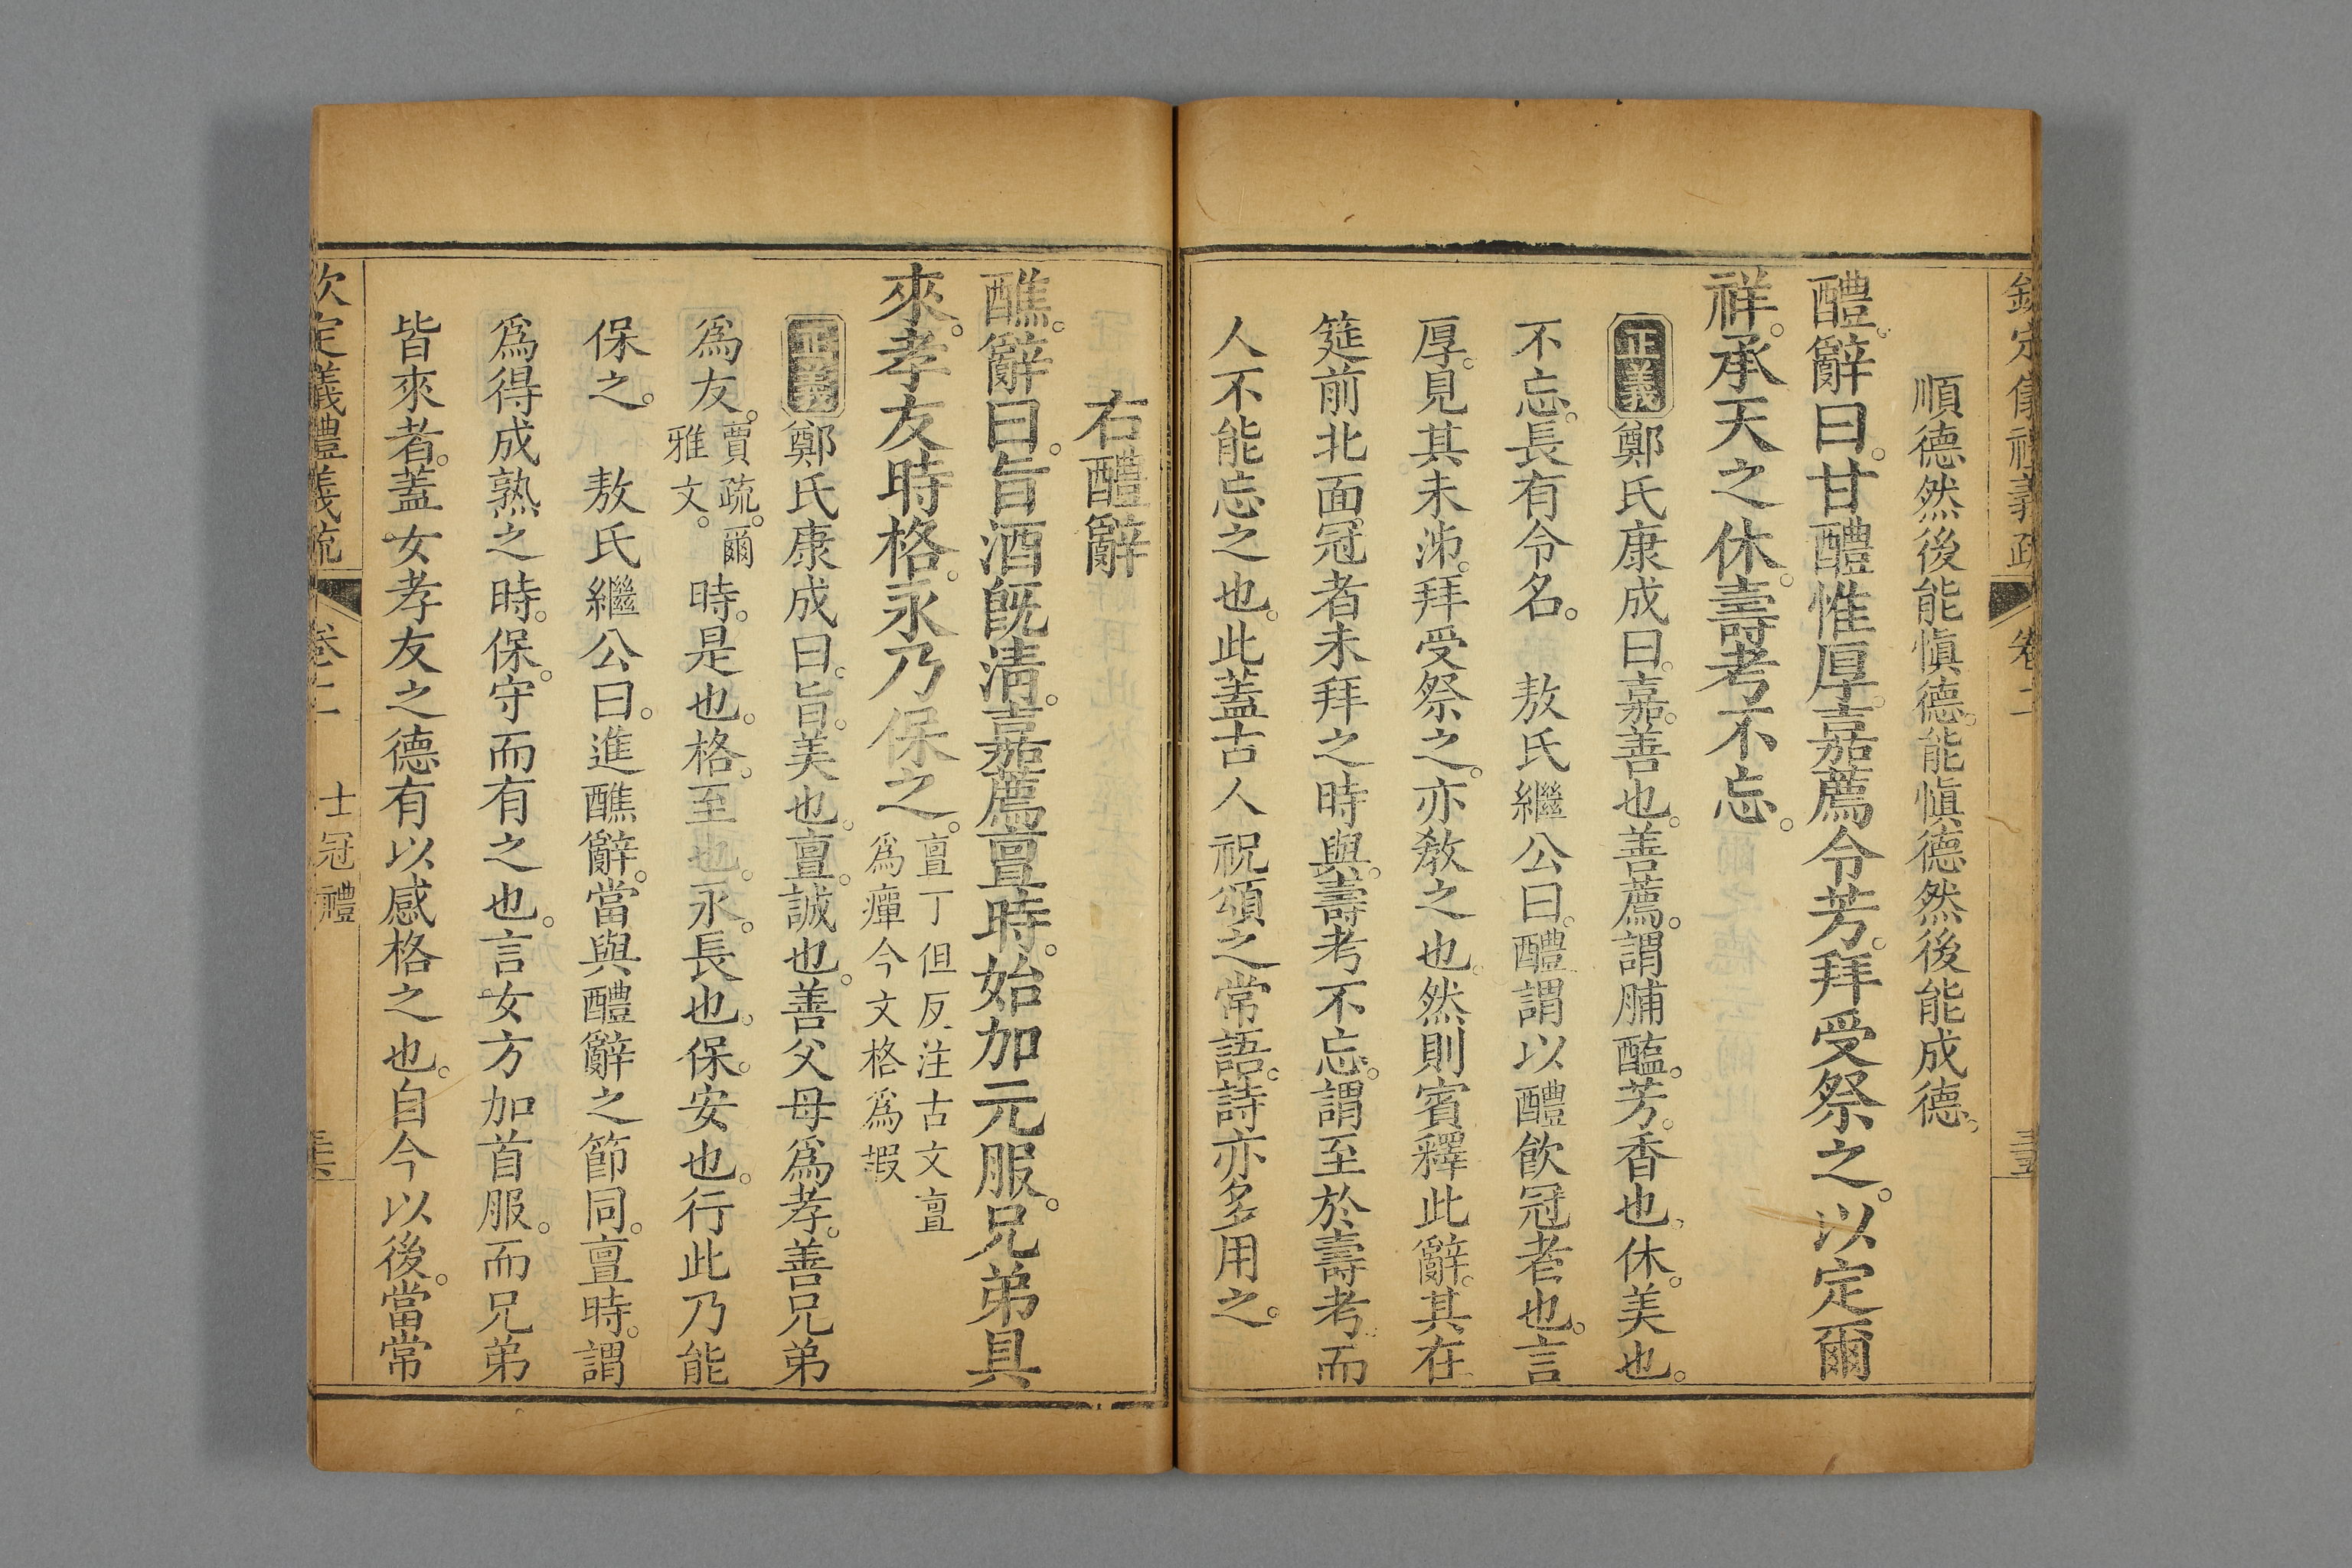 欽定儀禮義疏 卷二 三五
順德然後能愼德。能愼德然後能成德。
醴辭曰。甘醴惟厚。嘉薦令芳。拜受祭之。以定爾
祥。承天之休。壽考不忘。
正義鄭氏康成曰。嘉。善也。善薦。謂脯醢。芳。香也。休。美也。
不忘。長有令名。 敖氏繼公曰。醴謂以醴飮冠者也。言
厚。見其未沛。拜受祭之。亦敎之也。然則賓釋此辭。其在
筵前北面。冠者未拜之時與。壽考不忘。謂至於壽考而
人不能忘之也。此蓋古人祝頌之常語。詩亦多用之。
右醴辭
醮辭曰。旨酒旣淸。嘉薦亶時。始加元服。兄弟具
來。孝友時格。永乃保之。亶丁但反注古文亶
爲癉今文格爲嘏
正義鄭氏康成曰。旨。美也。亶。誠也。善父母爲孝。善兄弟
爲友。賈疏。爾
雅文。時。是也。格。至也。永。長也。保。安也。行此乃能
保之。 敖氏繼公曰。進醮辭。當與醴辭之節同。亶時。謂
爲得成熟之時。保。守而有之也。言女方加首服。而兄弟
皆來者。蓋女孝友之德有以感格之也。自今以後。當常
欽定儀禮義疏 卷二 士冠禮 三六